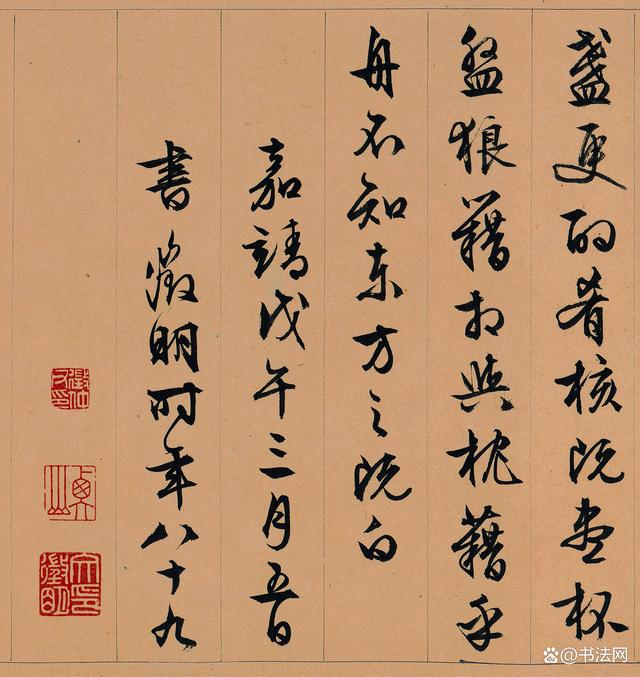 盞更酌肴核既盡杯
盤狼藉相與枕藉乎
舟不知東方之既白
嘉靖戊午三月五日
書徵明時年八十九
徵仲父印
文徵明印
@书法网